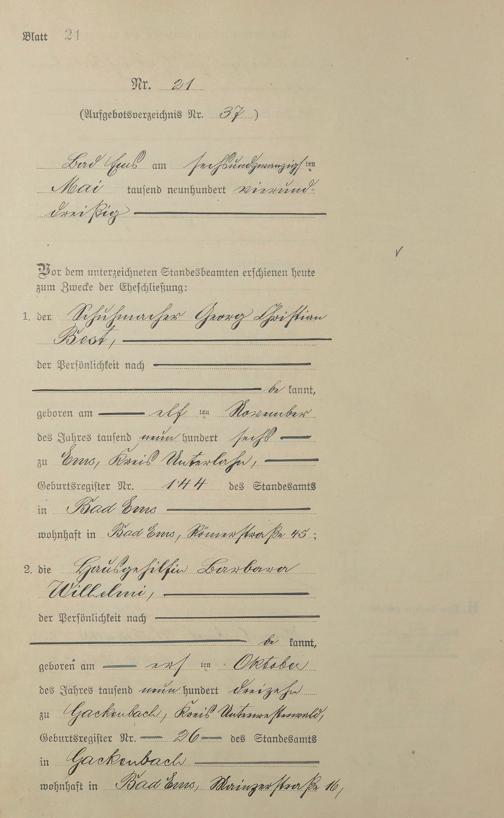 Blatt 21
Nr. 21
(Aufgebotsverzeichnis Nr. 37)
Bad Ems am sechsundzwanzigsten
Mai tausend neunhundert vierund-
dreißig
Vor dem unterzeichneten Standesbeamten erschienen heute
zum Zwecke der Eheschließung:
1. der Schuhmacher Georg Christian
Best,
der Persönlichkeit nach
be kannt,
geboren am elf ten November
des Jahres tausend neun hundert sechs
zu Ems, Kreis Unterlahn,
Geburtsregister Nr. 144 des Standesamts
in Bad Ems
wohnhaft in Bad Ems, Römerstraße 45;
2. die Hausgehilfin Barbara
Wilhelmi,
der Persönlichkeit nach
be kannt,
geboren am ten Oktober
des Jahres tausend neun hundert dreizehn
zu Gackenbach, Kreis Unterwesterwald,
Geburtsregister Nr. 26 des Standesamts
in Gackenbach
wohnhaft in Bad Ems, Mainzerstraße 16,